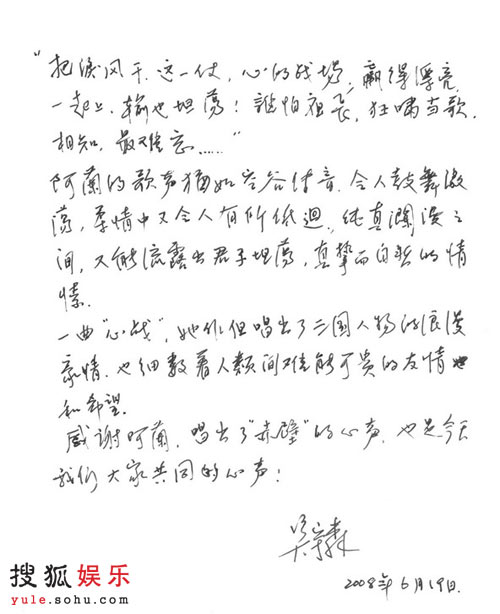 “把淚风干.这一仗，心的战場,赢得漂亮,
一起上.輸也坦蕩！誰怕夜長,狂嘯当歌,
相知,最难忘……”
阿蘭的歌声猶如空谷传音.令人鼓舞激
蕩,柔情中又令人有所低迴.纯真瀾漫之
间,又能流露出君子坦蕩,真摯而自然的情
愫.
一曲“心战”,她不但唱出了三国人物的浪漫
豪情.也细数着人類间难能可贵的友情
和希望.
感谢阿蘭,唱出了“赤壁”的心声.也是今天
我们大家共同的心声!
2008年6月19日.
搜狐娱乐
yule.sohu.com